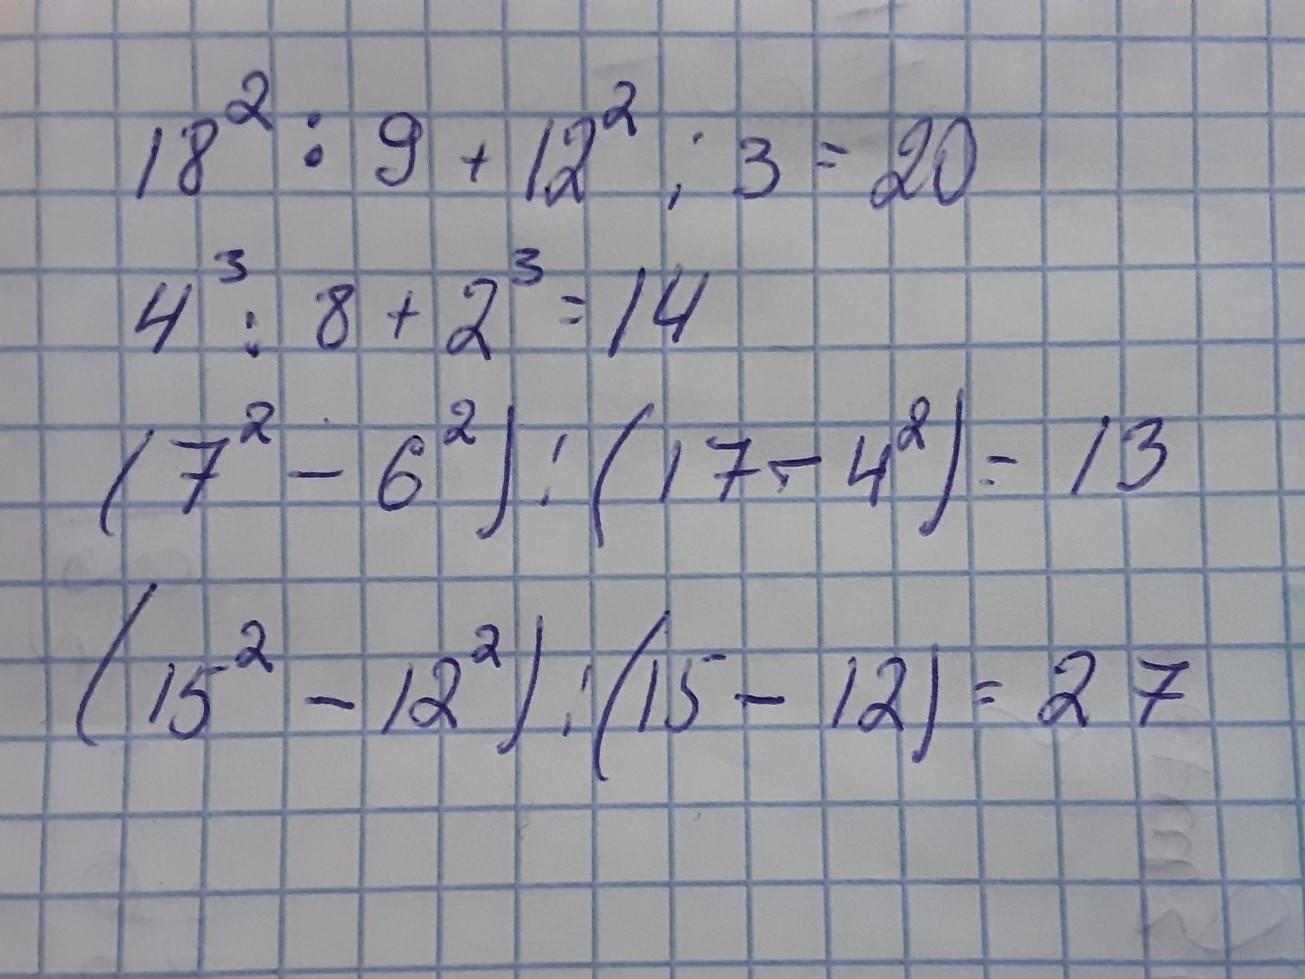 18² : 9 + 12² : 3 = 20
4³ : 8 + 2³ = 14
(7² - 6²) : (17 - 4²) = 13
(15² - 12²) : (15 - 12) = 27